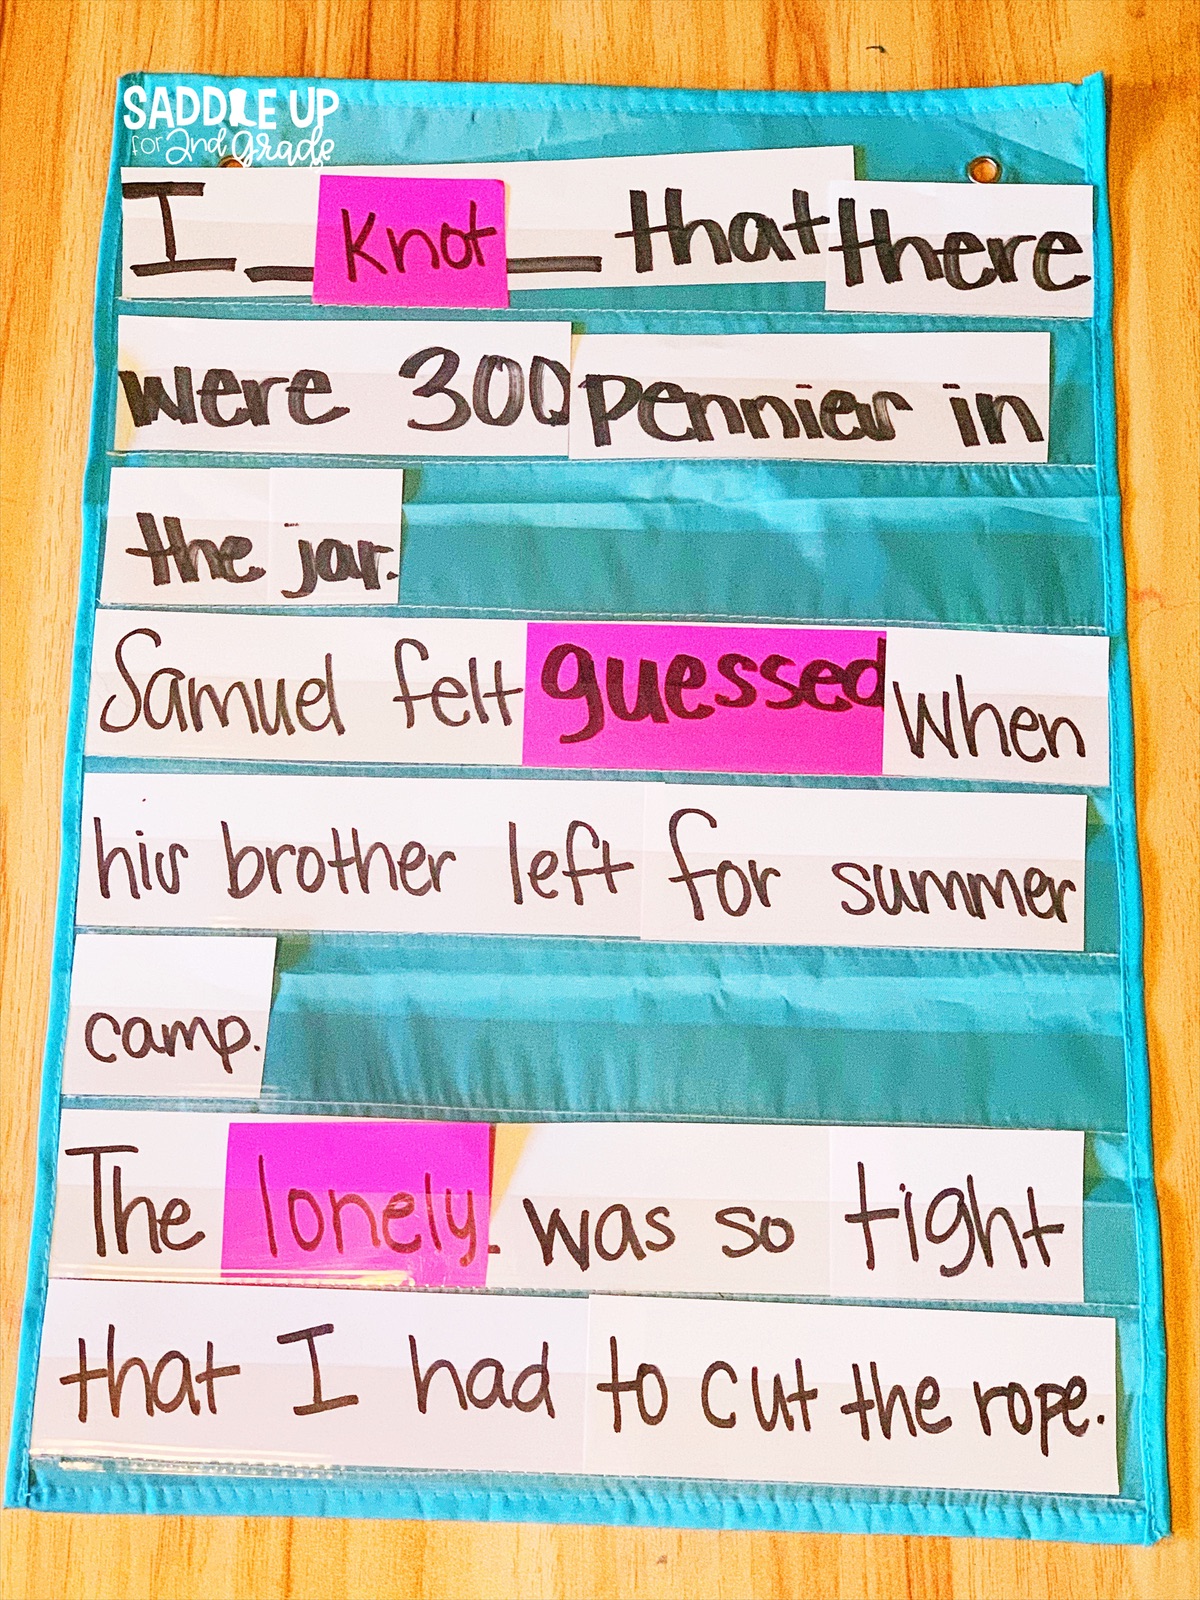 SADDLE UP
for 2nd grade
I _ knot _ that there
were 300 pennies in
the jar.
Samuel felt guessed when
his brother left for summer
camp.
The lonely was so tight
that I had to cut the rope.